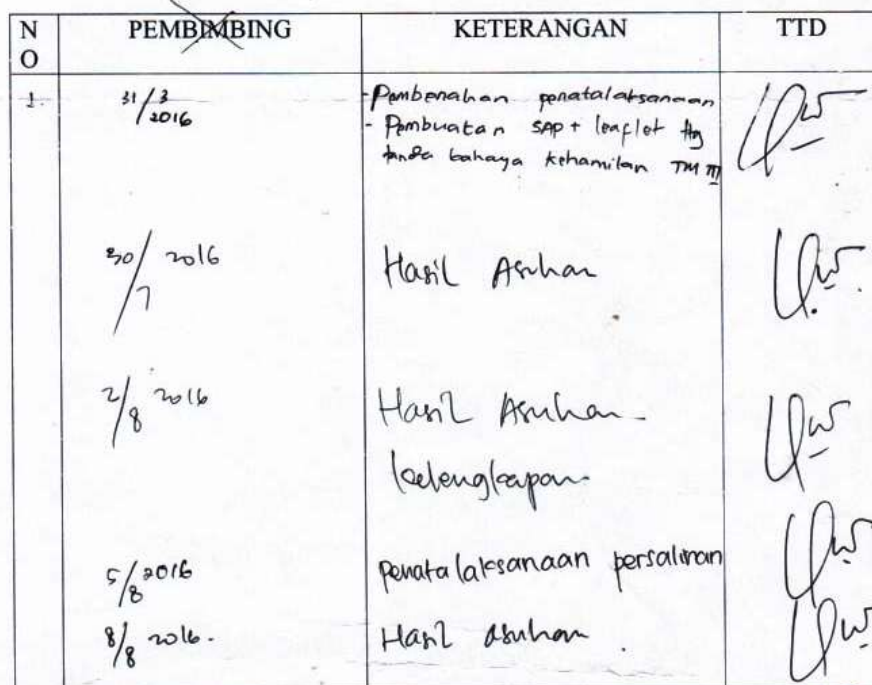 NO PEMBIMBING KETERANGAN TTD
1. 31/3 2016 - Pembenahan penatalaksanaan
- Pembuatan SAP + leaflet ttg
tanda bahaya kehamilan TM III
30/7 2016 Hasil Asuhan
2/8 2016 Hasil Asuhan
kelengkapan
5/8 2016 penatalaksanaan persalinan
8/8 2016. Hasil asuhan